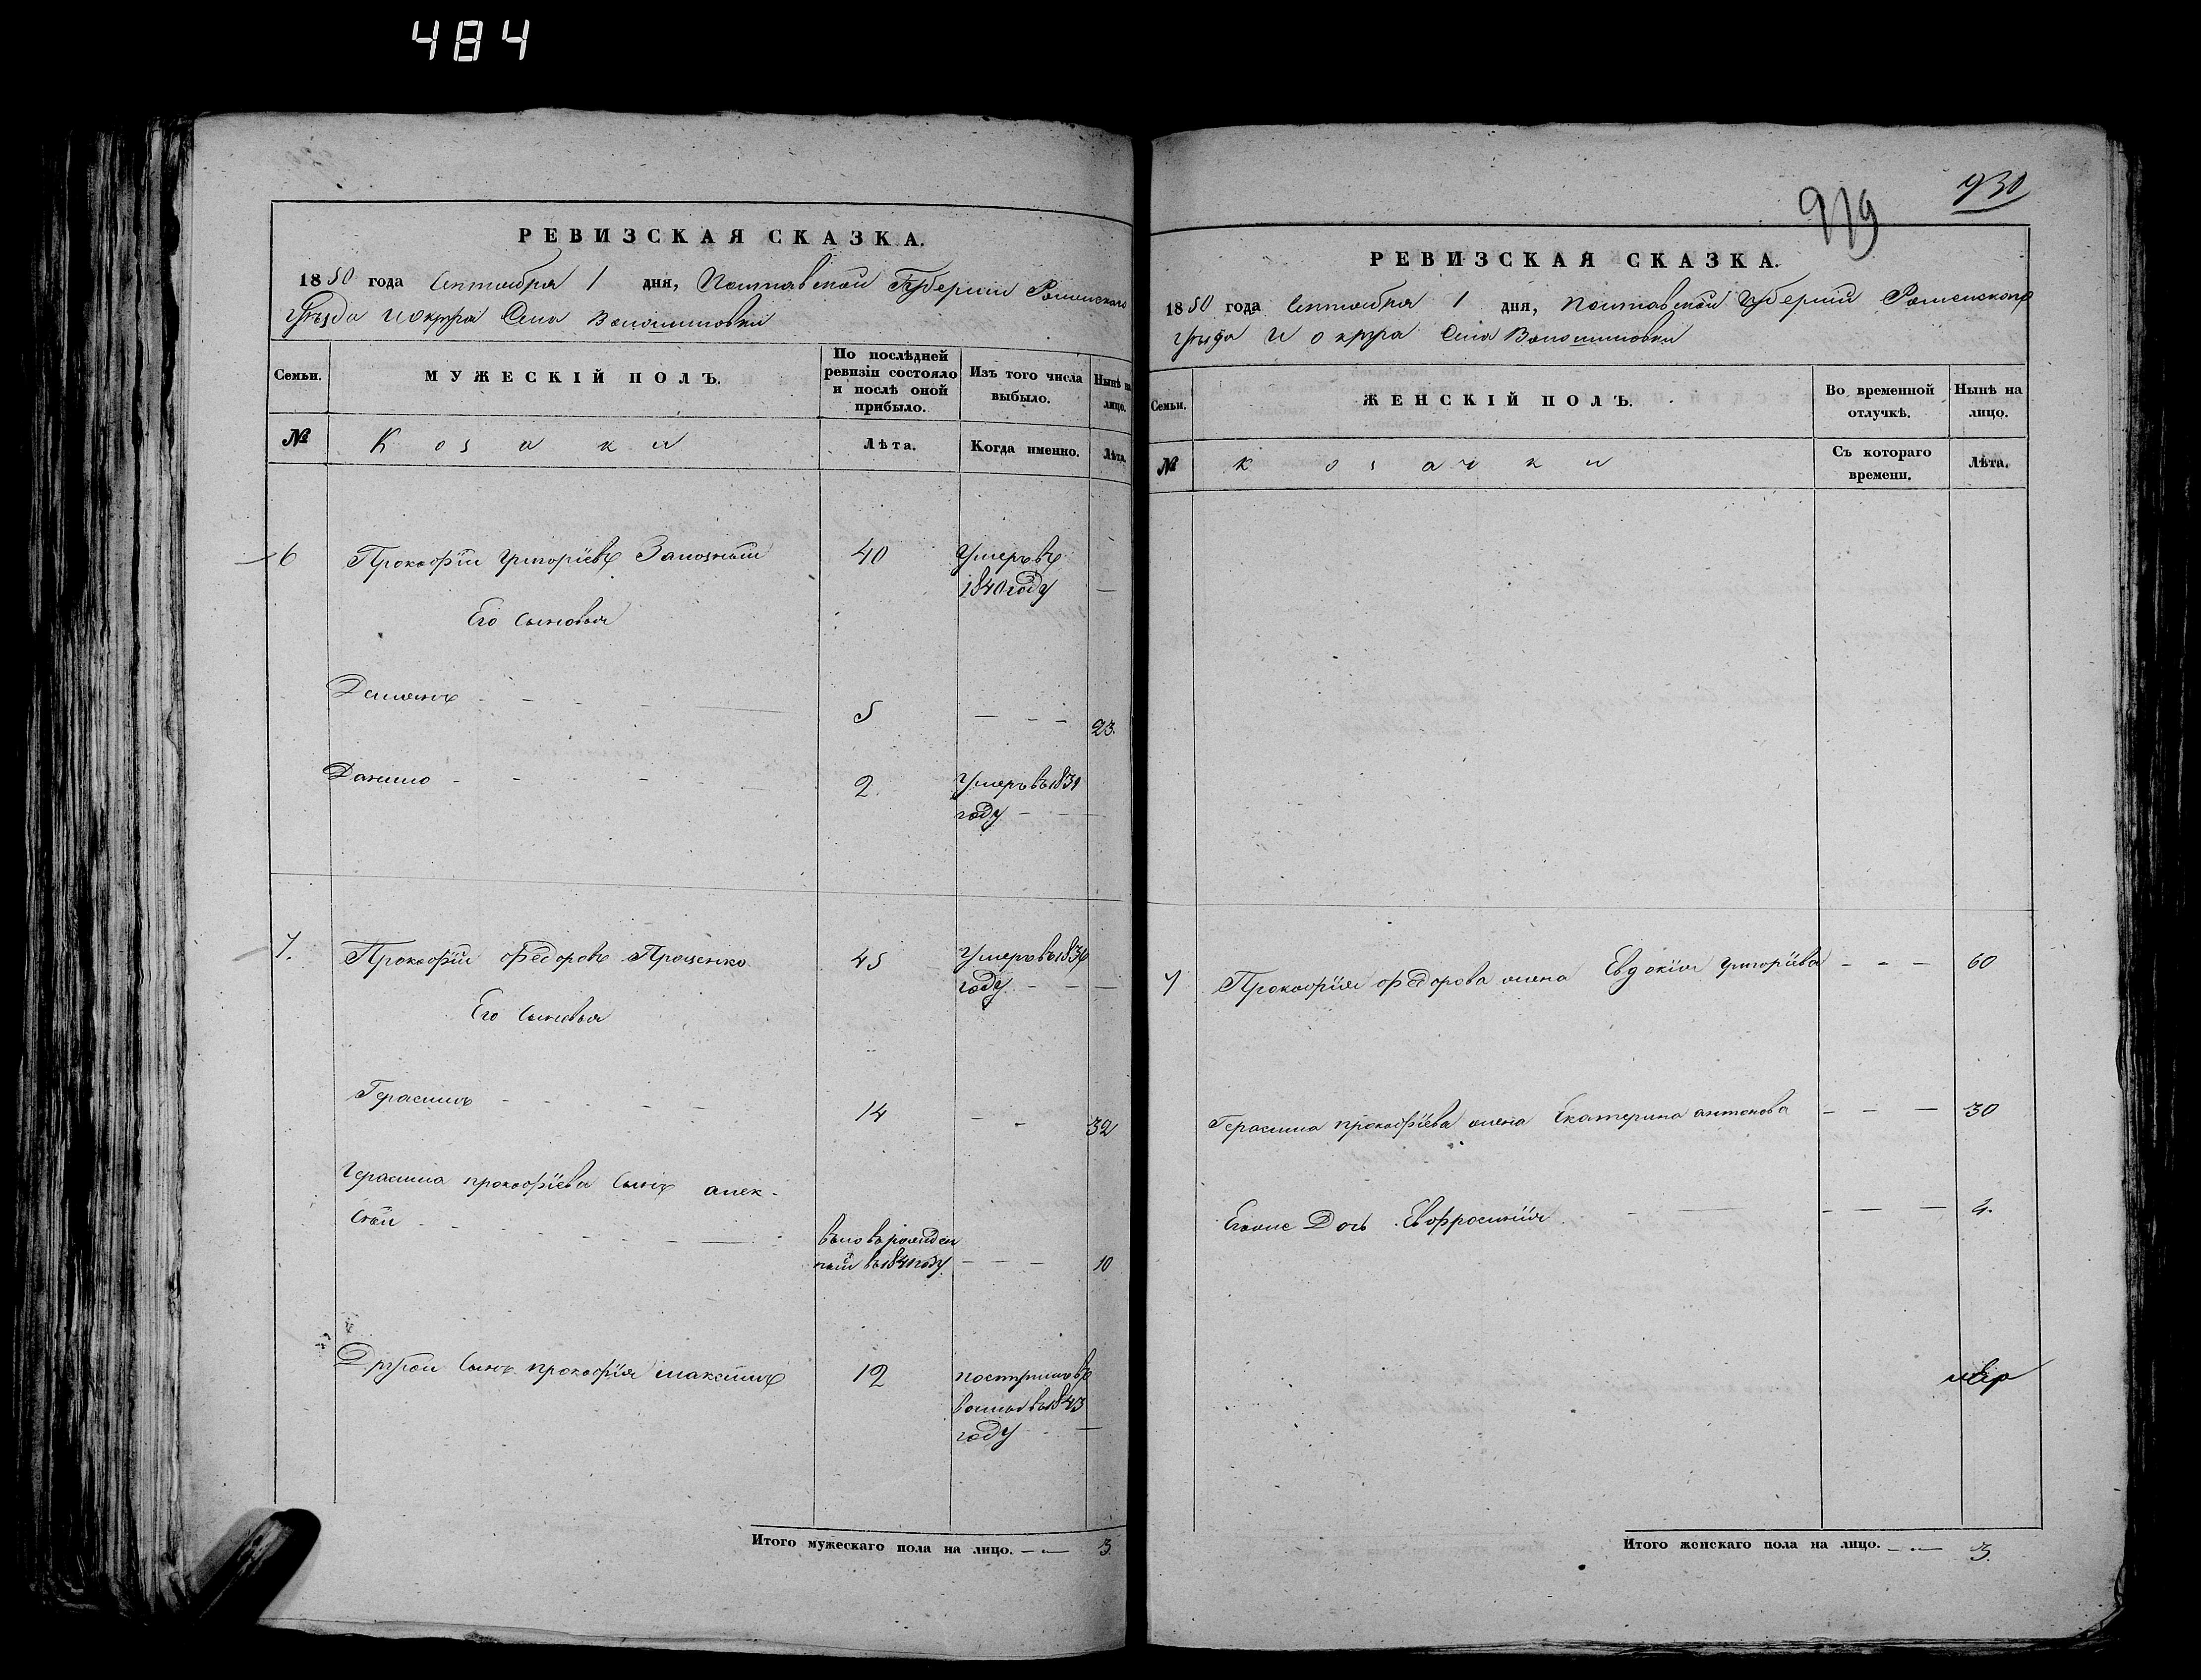 484
РЕВИЗСКАЯ СКАЗКА.
1850 года Сентября 1 дня, Полтавской Губернии Роменского
Уѣзда и округа Села Волошиновки
Семьи.
МУЖЕСКІЙ ПОЛЪ.
По послѣдней ревизіи состояло и послѣ оной прибыло.
Изъ того числа выбыло.
Нынѣ на лицо.
№
Козаки
Лѣта.
Когда именно.
Лѣта.
6 Прокофій Григоріевъ 40 Умеръ въ
1840 году —
Его сыновья
Демянъ - - - - 5 — - - 23.
Данило - - - - 2. Умеръ въ 1839
году - - —
7. Прокофій Федоровъ Проценко 45 Умеръ въ 1836
году - - —
Его сыновья
Герасимъ - - - - - 14 - - 32
Герасима прокофіева сынъ алек-
сѣй - - - - - вновь рожден
ный въ 1841 году - - - 10
Другой сынъ прокофія максимъ 12 поступилъ въ
въ 1843
году - - —
Итого мужескаго пола на лицо. — 3.
919
930
РЕВИЗСКАЯ СКАЗКА.
1850 года Сентября 1 дня, Полтавской Губерніи Роменского
уѣзда и округа Села Волошиновки
Семьи.
ЖЕНСКІЙ ПОЛЪ.
Во временной отлучкѣ.
Нынѣ на лицо.
№
козачки
Съ котораго времени.
Лѣта.
7 Прокофія федорова жена Евдокія григоріева - - — 60
Герасима прокофіева жена Екатерина антонова - — — 30
Егоже Дочь Евфросинія - — — - — — 4.
Итого женскаго пола на лицо. — 3.